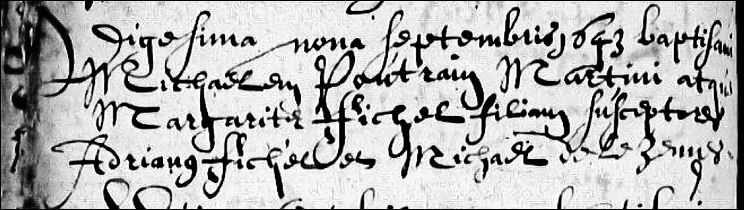 Vigesima nona septembris 1643 baptisavi
Michaelem Poutrain Martini atqui
Margaritæ Fichel filium susceptores
Adrianus Fichel et Michael